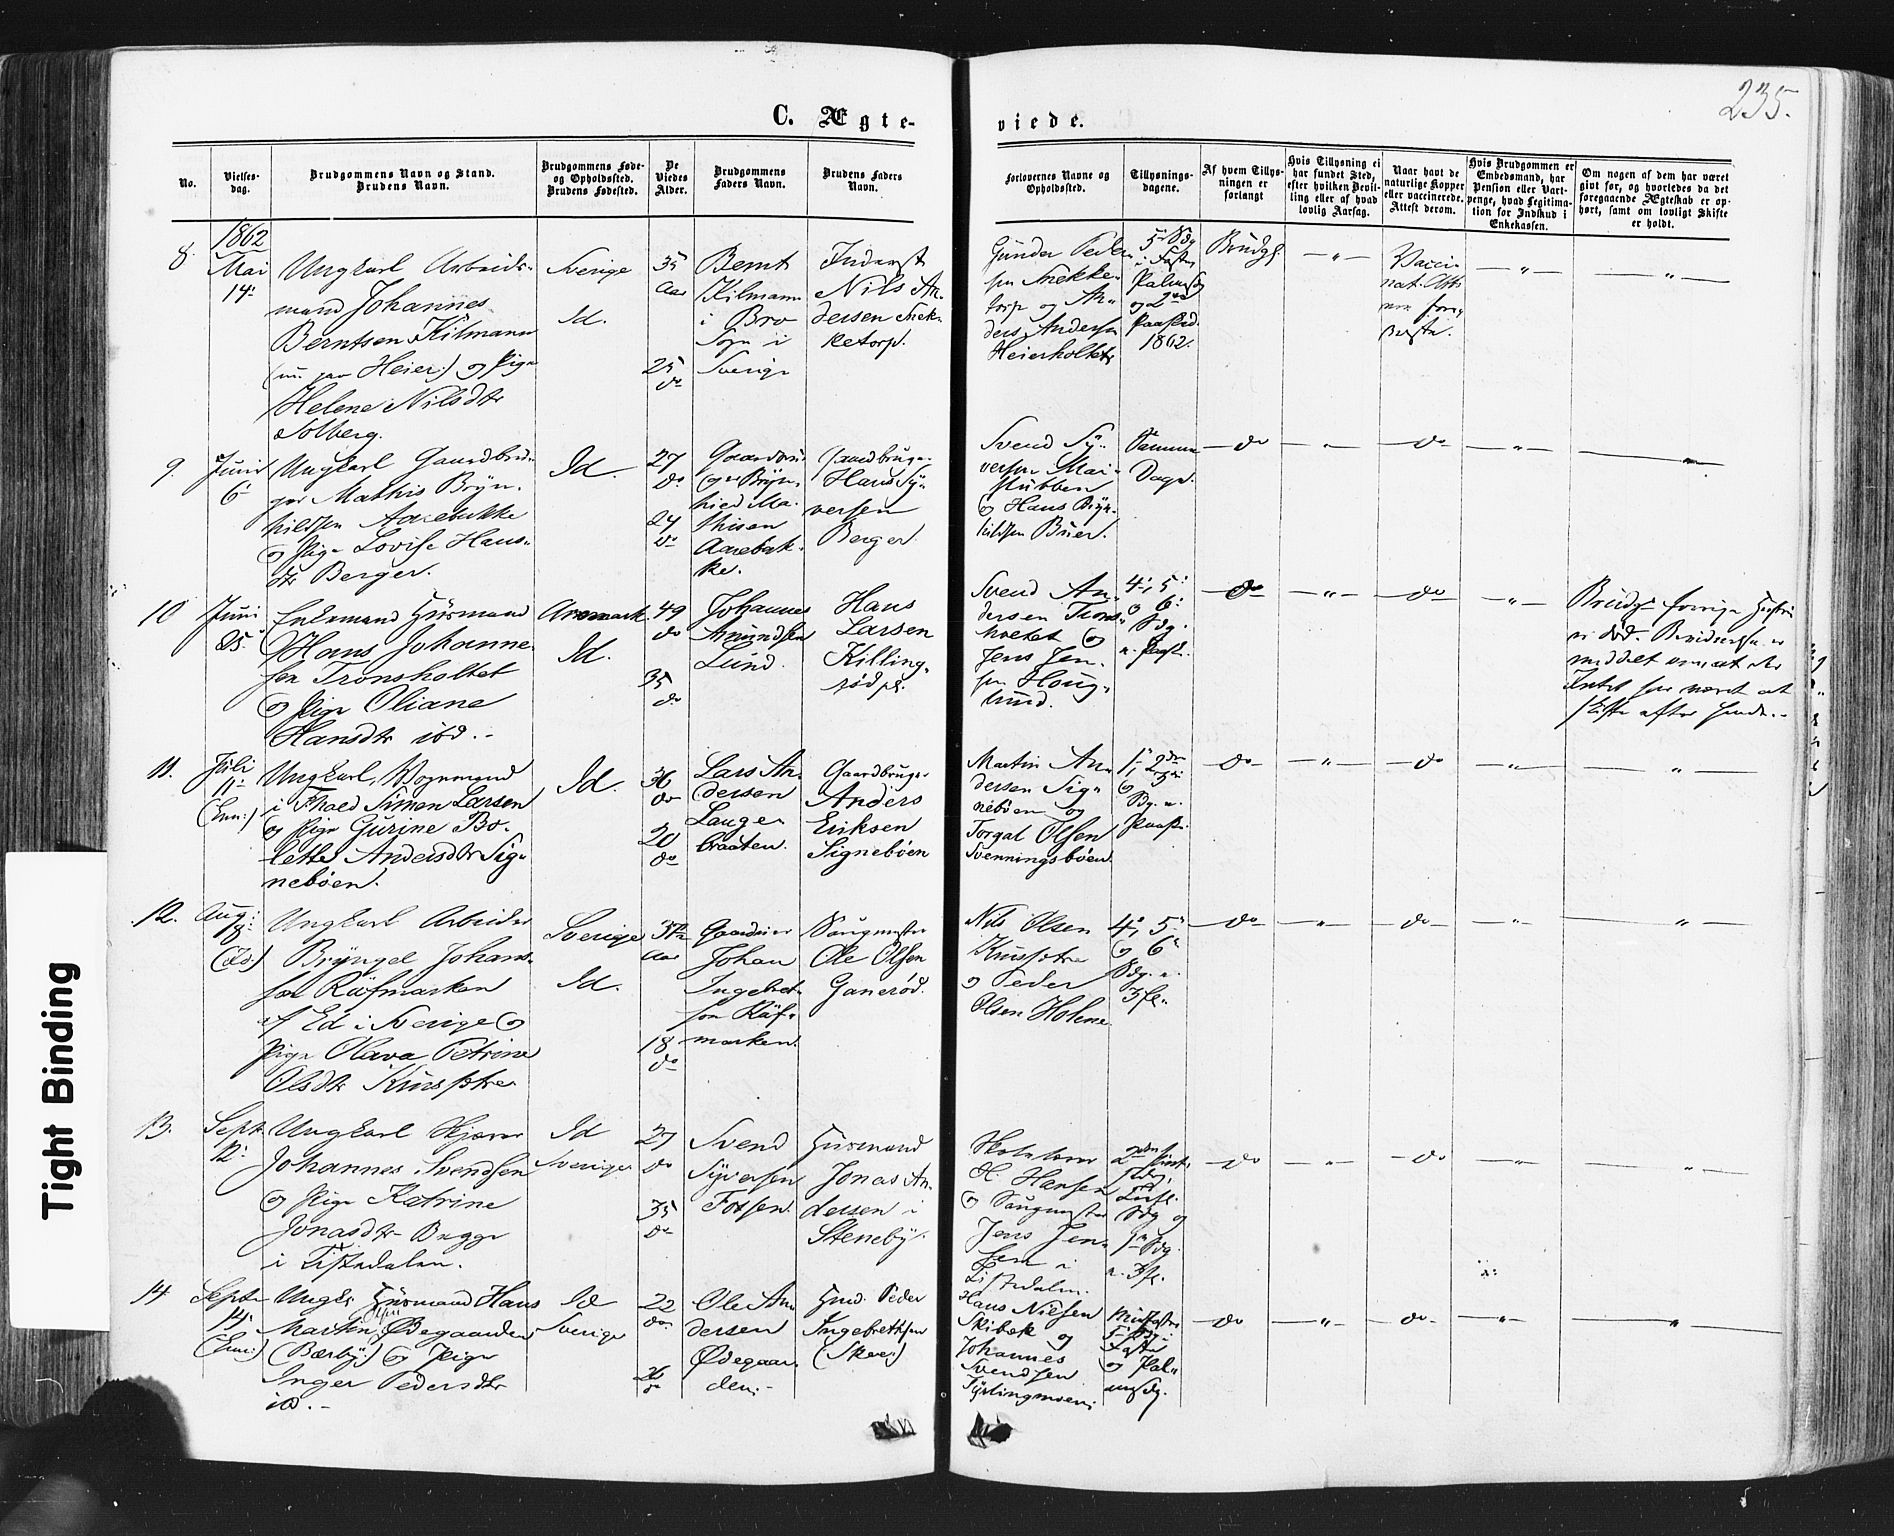 235.
C. Ægte-
viede.
No.
Vielses-
dag.
Brudgommens Navn og Stand.
Brudens Navn.
Brudgommens Føde-
og Opholdsted.
Brudens Fødested.
De
Viedes
Alder.
Brudgommens
Faders Navn.
Brudens Faders
Navn.
Forlovernes Navne og
Opholdsted.
Tillysnings-
dagene.
Af hvem Tillys-
ningen er
forlangt
Hvis Tillysning ei
har fundet Sted,
efter hvilken Bevil-
ling eller af hvad
lovlig Aarsag.
Naar havt de
naturlige Kopper
eller vaccinerede.
Attest derom.
Hvis Brudgommen er
Embedsmand, har
Pension eller Vart-
penge, hvad Legitima-
tion for Indskud i
Enkekassen.
Om nogen af dem har været
givt før, og hvorledes da det
foregaaende Ægteskab er op-
hørt, samt om lovligt Skifte
er holdt.
1862
8.
Mai
14
Ungkarl Arbeids-
mand Johannes
Berntsen Kilmann
Heier) og Pige
Helene Nilsdtr
Solberg.
Sverige
Id.
35
Aar
25
do
Bernt
Kilmann
i Bro
Sogn i
Sverige
Inderst
Nils An-
dersen Snek-
ketorp.
Gunder Peder-
sen Snekke-
torp og An-
ders Andersen
Heierholtet
5 Sdg
i Faste
Palmesdg
og 2den
Paaskd.
1862.
Brudg.
9.
Juni
6
Ungkarl Gaardbru-
ger Mathis Bryn-
hildsen Aarebakke
og Pige Lovise Hans-
dtr Berger.
Id.
27
do
24
do
Gaardbru-
ger Bryn-
hild Ma-
thisen
Aarebak-
ke.
Gaardbruger
Hans Sy-
versen
Berger
Svend Sy-
versen Mai-
stubben
og Hans Bryn-
hildsen Buer.
Samme
Dage.
do
do
10
Juni
25.
Enkemand Husmand
Hans Johanne-
sen Tronsholtet
og Pige Oliane
Hansdtr ibd.
Aremark
Id.
49
do
35
do
Johannes
Amundsen
Lund.
Hans
Larsen
Killing-
rød pl.
Svend An-
dersen Trons-
holtet og
Jens Jen-
sen Houg-
lund.
4, 5
og 6
Sdg.
e. Paaske.
do
do
Brudg. forrige Hustru
er død.
Intet har været at
skifte efter hende.
11.
Juli
11
Ungkarl, Vognmand
i Fhald Simen Larsen
og Pige Gurine Bo-
lette Andersdtr Sig-
nebøen.
Id.
36
do
20
do
Lars An-
dersen
Lange-
braaten.
Gaardbruger
Anders
Eriksen
Signebøen
Martin An-
dersen Sig-
nebøen og
Torgal Olsen
Svenningsbøen.
1, 2den
og 3die
Sdg. e.
Paaske.
do
do
12.
Aug:
18
Ungkarl Arbeider
Bryngel Johans-
sen Räfmarken
af Ed i Sverige og
Pige Olava Petrine
Olsdtr
Sverige
Id.
Aar
18
do
Gaardeier
Johan
Ingebret-
sen Räf-
marken.
Saugmester
Ole Olsen
Ganerød.
Nils Olsen
og Peder
Olsen Holene
4, 5
og 6
Sdg. e.
do
do
13.
Sept.
12
Ungkarl Kjører
Johannes Svendsen
og Pige Katrine
Jonasdtr Begge
i Tistedalen.
Id
Sverige
27
do
35
do
Svend
Syversen
Fossen
Husmand
Jonas An-
dersen i
Steneby.
Skolelærer
H. Hansen
og Saugmester
Jens Jen-
sen i
Tistedalen.
do
do
14
Septr
14
Ungk. Husmand Hans
Martin Ødegaarden
(Bærby) og Pige
Inger Pedersdtr
ibd.
Id
Sverige
22
do
26
do
Ole An-
dersen
Ødegaar-
den.
Husmd. Peder
Ingebretsen
(Skee)
Hans Nielsen
Skibæk og
Johannes
Svendsen
Tyslingmoen
Midfaste
5 Sdg i
Faste
og Pal-
mesdg.
do
do
Tight Binding